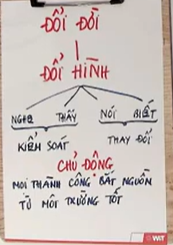 ĐỔI ĐỜI
ĐỔI HÌNH
NGHE THẤY NÓI BIẾT
KIỂM SOÁT THAY ĐỔI
CHỦ ĐỘNG
MỌI THÀNH CÔNG BẮT NGUỒN
TỪ MÔI TRƯỜNG TỐT
WIT